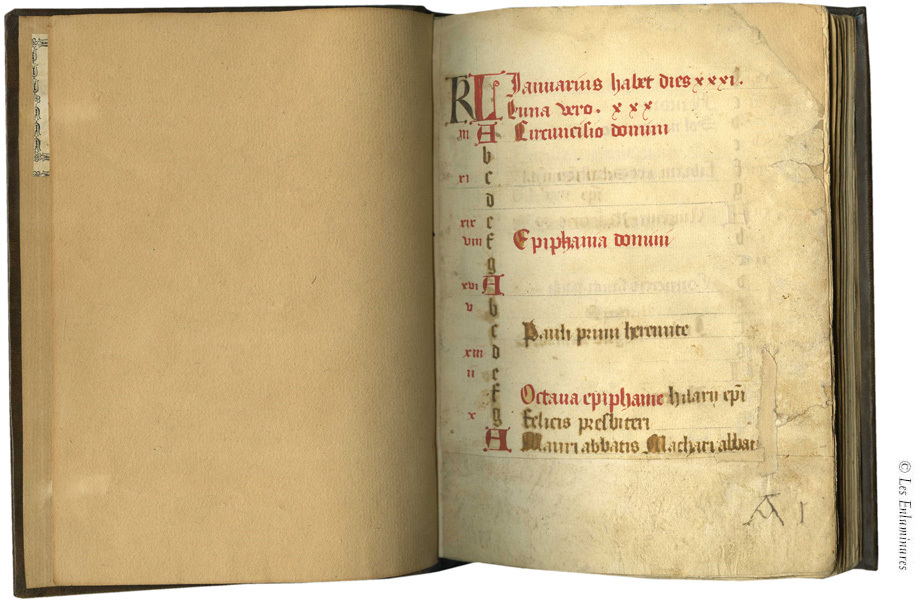 KL Ianuarius habet dies xxxi.
Luna vero. xxx
iii A Circuncisio domini
b
xi c
d
xix e
viii f Epiphania domini
g
xvi A
v b
c Pauli primi heremite
xiii d
ii e
f Octava epiphanie hilarii ep̄i
x g felicis presbiteri
A Mauri abbatis Macharii abbat
A I
© Les Enluminures